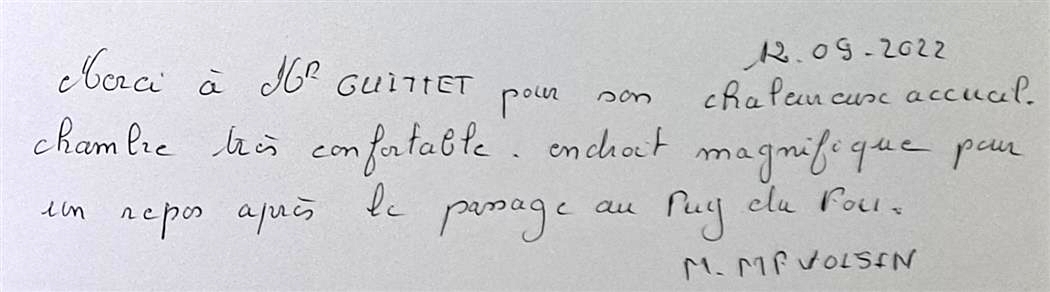 12.09.2022
Merci à Mr GUITTET pour son chaleureux accueil.
chambre très confortable. endroit magnifique pour
un repos après le passage au Puy du Fou.
M. Me VOISIN